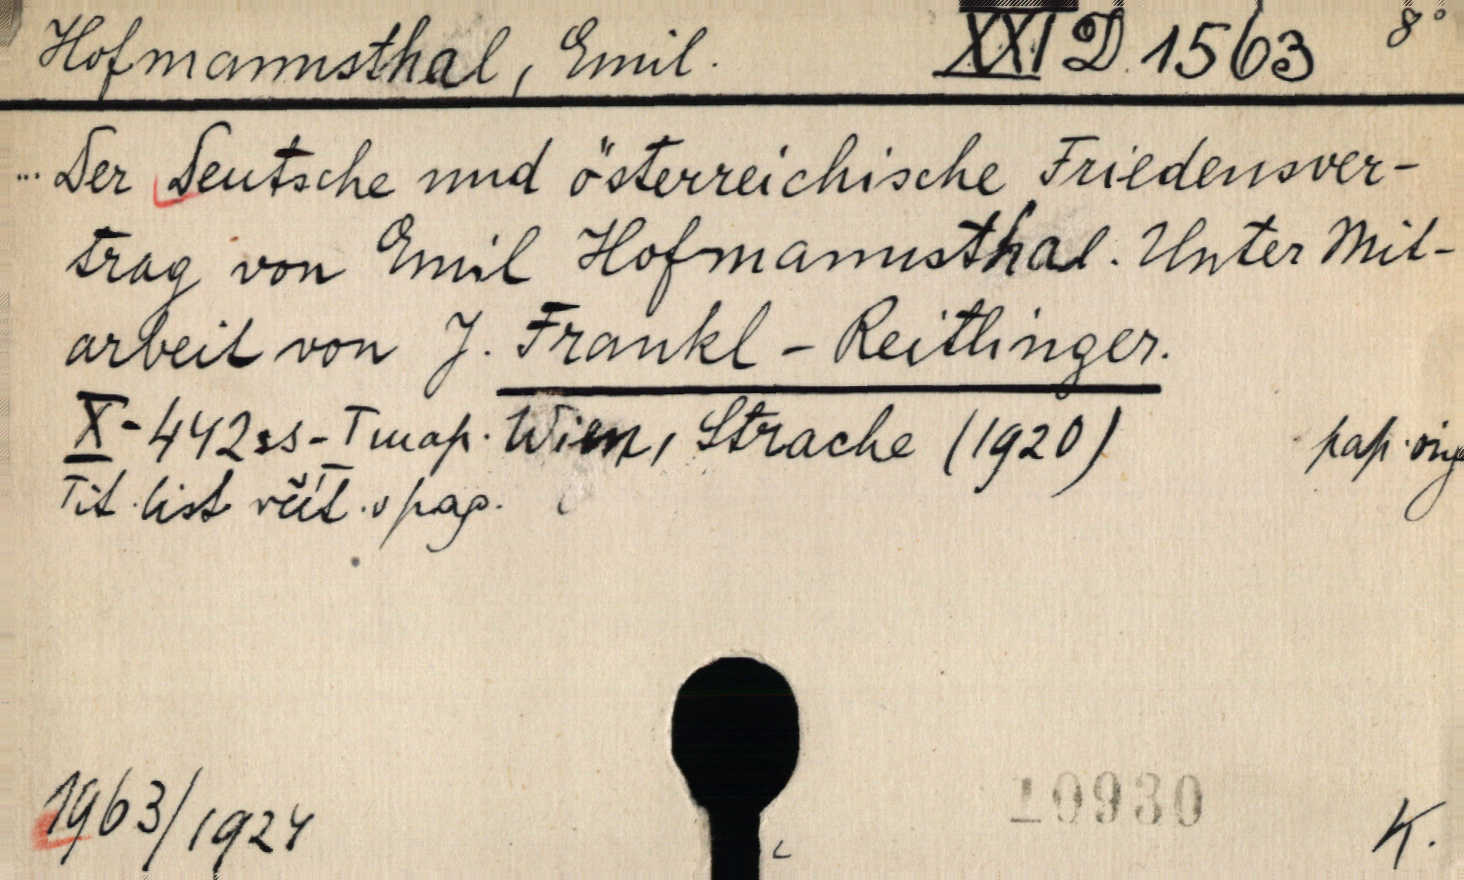 Hofmannsthal, Emil. XXI D. 1563 8°
... Der Deutsche und österreichische Friedensver-
trag von Emil Hofmannsthal. Unter Mit-
arbeit von J. Frankl - Reitlinger.
X - 442 ss - 1 map. Wien, Strache (1920) pap. orig
Tit. list
1963/1924
10930
K.